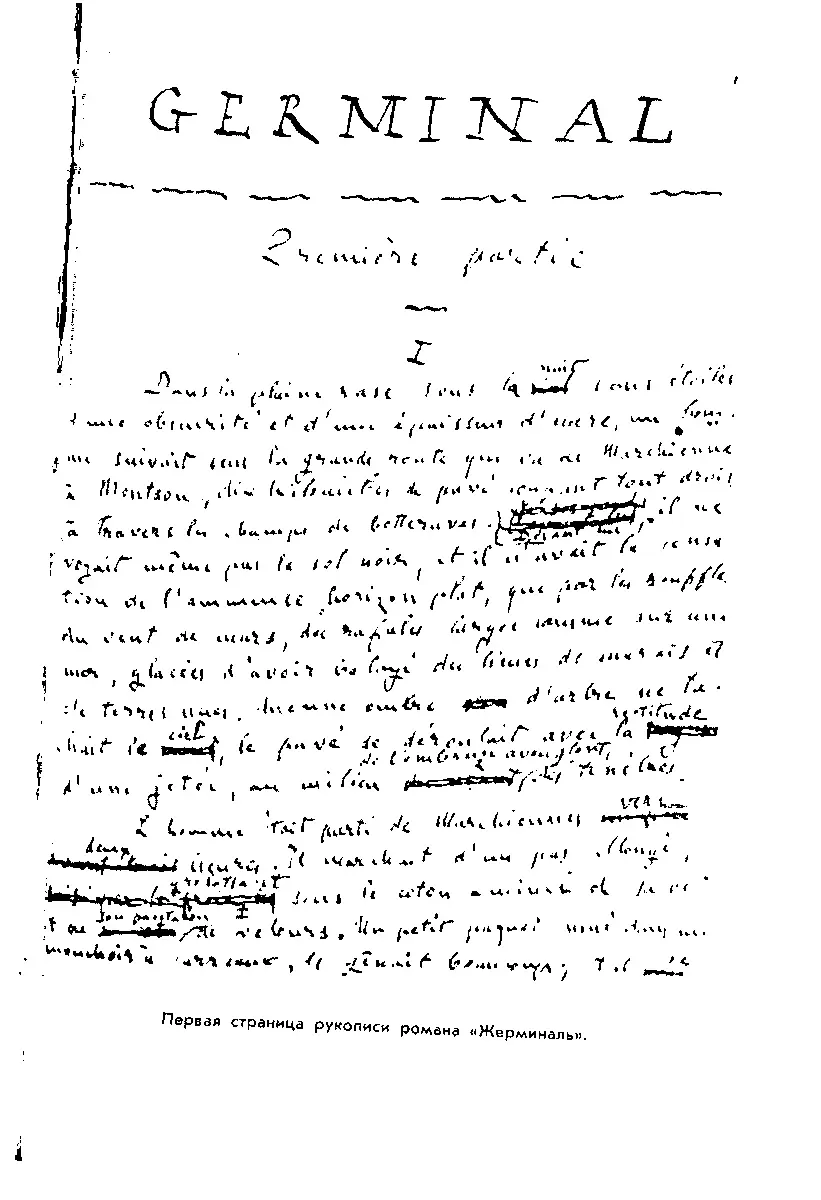 GERMINAL
Première partie
I
Dans la plaine rase, sous la nuit sans étoiles
d'une obscurité et d'une épaisseur d'encre, un hom-
me suivait seul la grande route qui va de Marchiennes
à Montsou, dix kilomètres de pavé coupant tout droit
à travers les champs de betteraves. Devant lui, il ne
voyait même pas le sol noir, et il n'avait la sensa
tion de l'immense horizon plat, que par les souffles
du vent de mars, des rafales larges comme sur une
mer, glacées d'avoir balayé des lieues de marais et
de terres nues. Aucune ombre d'arbre ne ta-
chait le ciel, le pavé se déroulait avec la rectitude
d'une jetée, au milieu de l'embrun aveuglant des ténèbres.
L'homme était parti de Marchiennes vers
deux heures. Il marchait d'un pas allongé,
grelottant sous le coton aminci de sa ves
te et de son pantalon de velours. Un petit paquet, noué dans un
mouchoir à carreaux, le gênait beaucoup; et il
Первая страница рукописи романа «Жерминаль».